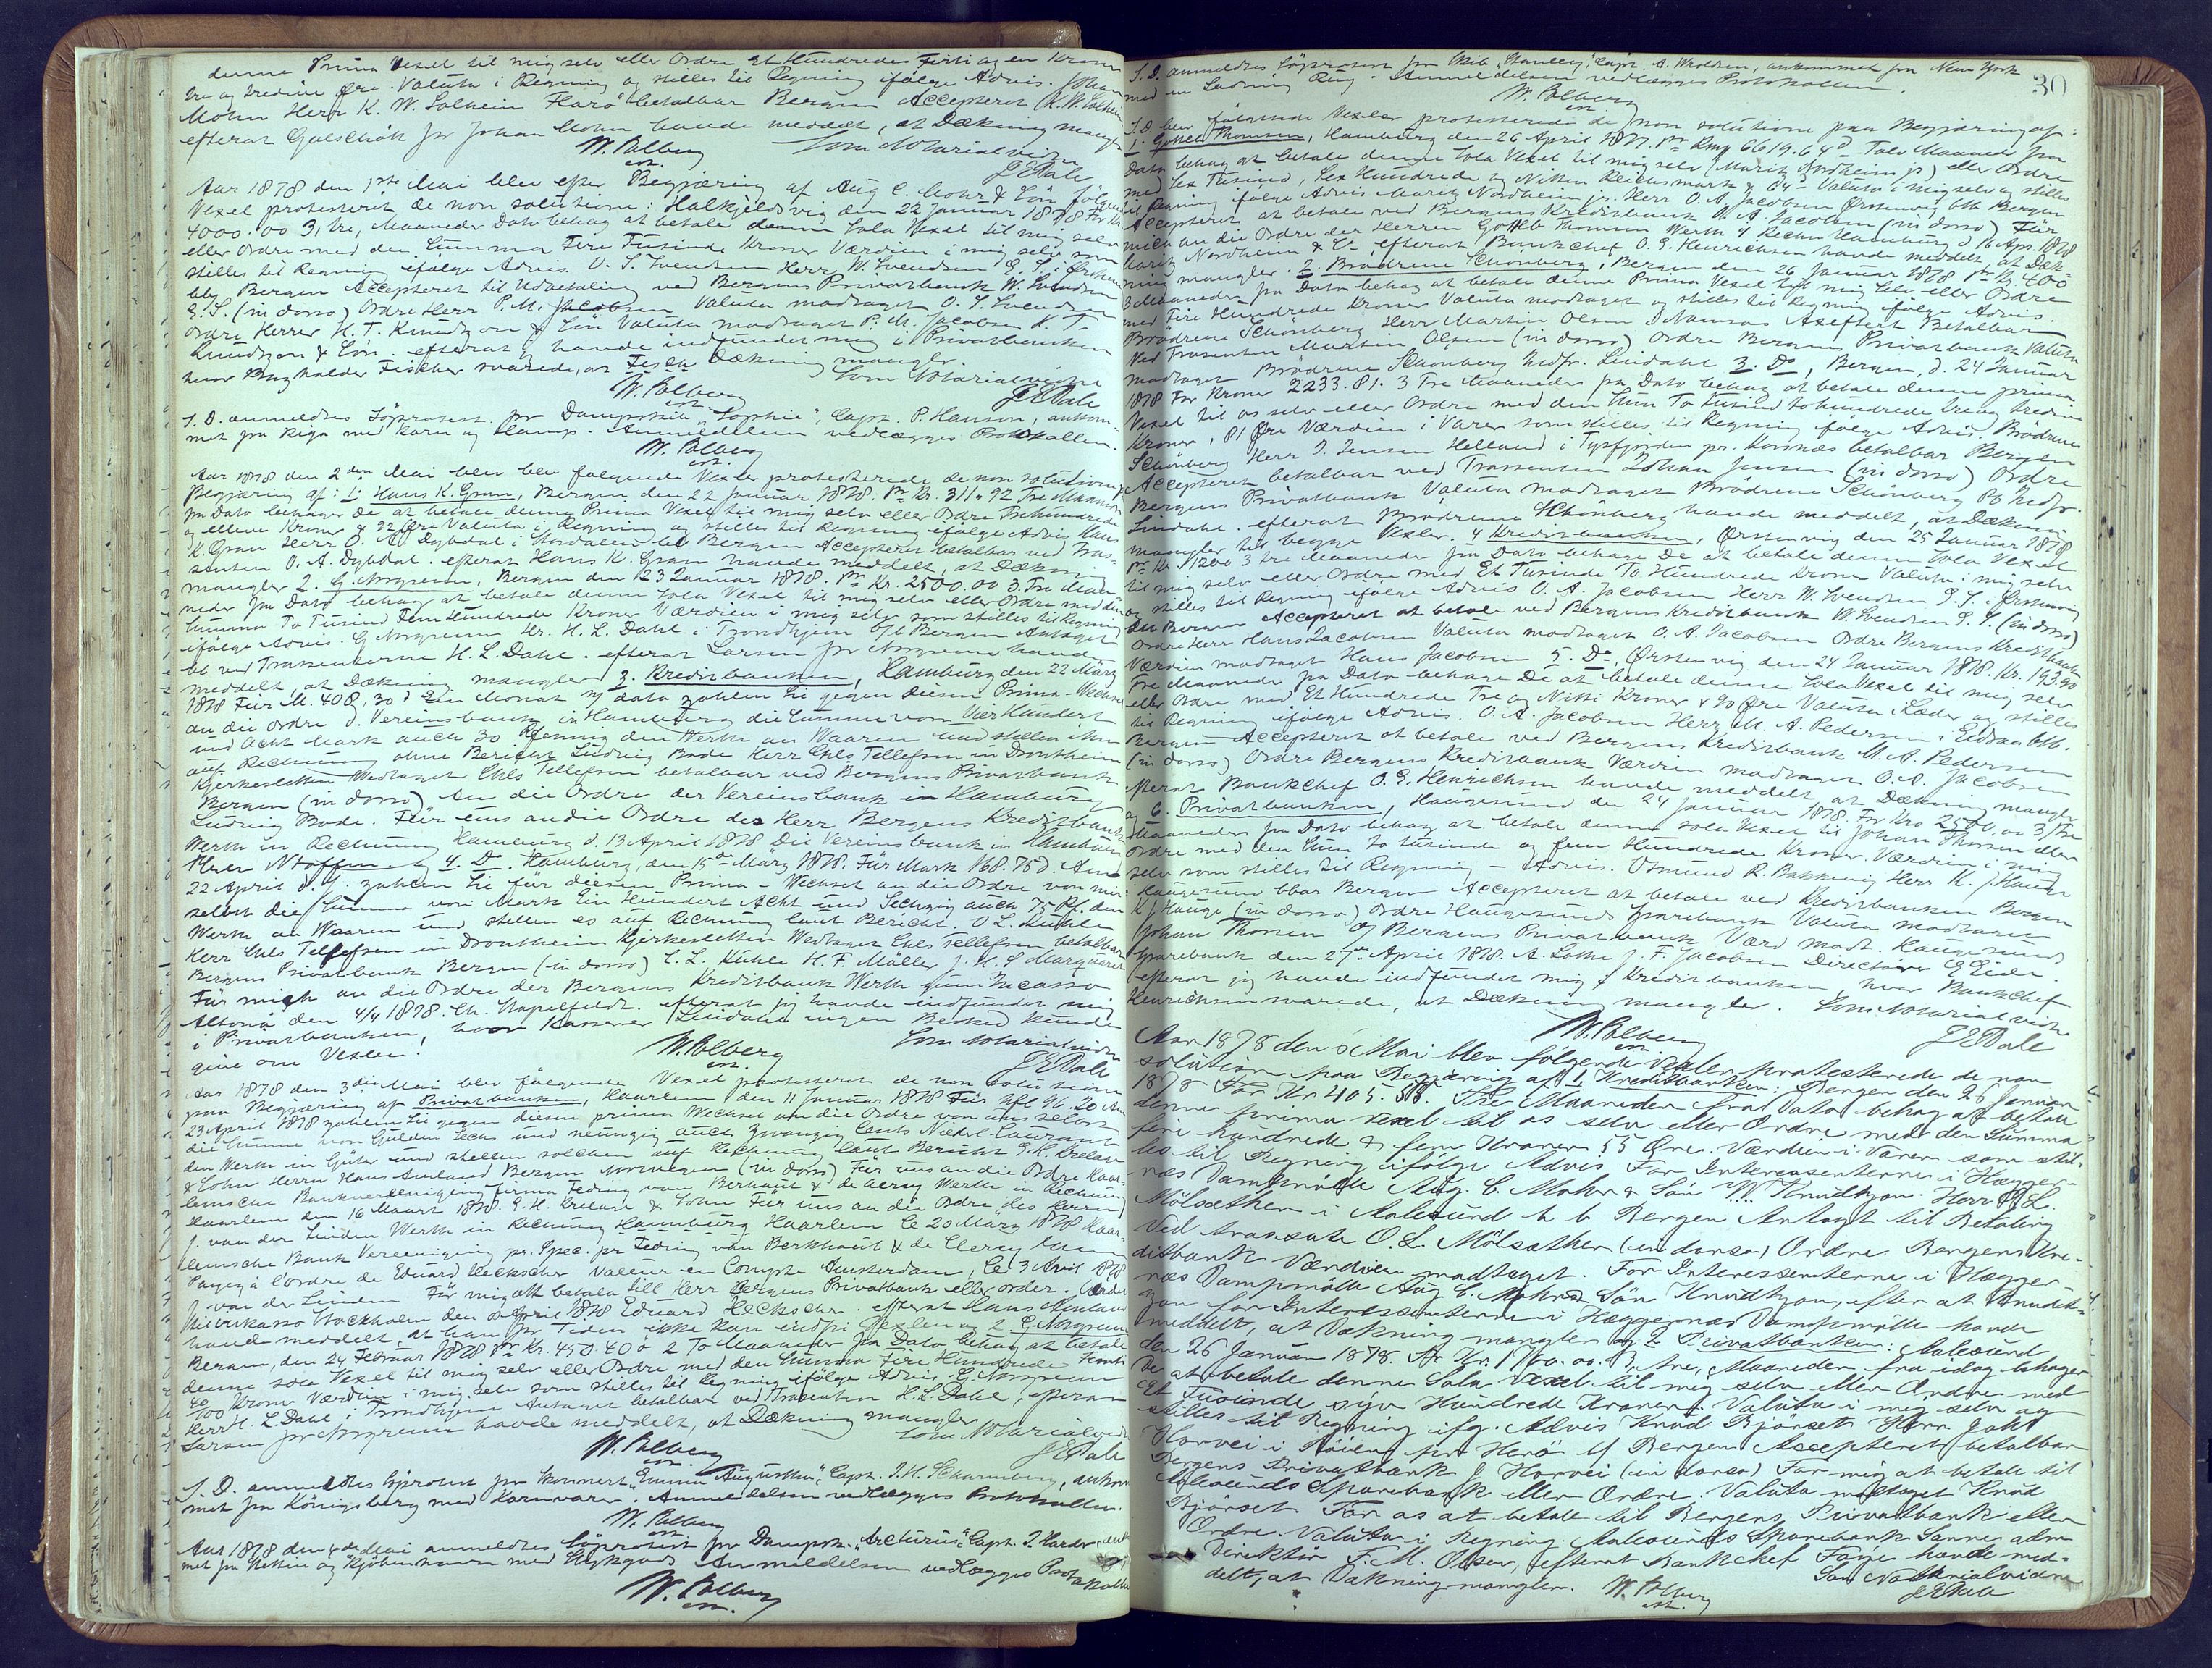 denne Prima Vexel til mig selv eller Ordre Et Hundredes Firti og en Kroner
tre og tredive Øre. Valuta i Regning og stilles til Regning ifølge Advis. Johan
Mohn Herr K. W. Solheim Florø betalbar Bergen Accepteret K. W. Solheim
efterat Galschiøt for Johan Mohn havde meddelt, at Dækning mangler
W. Polberg Som Notarialvidne
est. J E Dale
Aar 1878 den 1ste Mai blev efter Begjæring af Aug C. Mohr & Søn følgende
Vexel protesteret de non solutione: Halkjeldsvig den 22 Januar 1878 For Kr.
4000.00 3, tre, Maaneder Dato behag at betale denne Sola Vexel til mig selv
eller Ordre med den Summa Fire Tusinde Kroner Værdien i mig selv som
stilles til Regning ifølge Advis. O. S. Svendsen Herr W. Svendsen E. S. i Ørstenvig
btb. Bergen Accepteret til Udbetaling ved Bergens Privatbank W. Svendsen
E. S. (in dosso) Ordre Herr P. M. Jacobsen Valuta modtaget O. S. Svendsen
Ordre Herrer H. T. Knudtzon & Søn Valuta modtaget P. M. Jacobsen K. T.
Knudtzon & Søn. efterat jeg havde indfundet mig i Privatbanken
hvor Bogholder Fischer svarede, at Dækning mangler.
W. Polberg Som Notarialvidne
est. J E Dale
S. D. anmeldtes Søprotest for Dampskib "Sophie", Capt. P. Hansen, ankom-
met fra Riga med Korn og Hamp. Anmeldelsen vedlægges Protokollen.
W. Polberg
est.
Aar 1878 den 2den Mai blev følgende Vexler protesterede de non solutione
Begjæring af: 1. Hans K. Gran, Bergen den 22 Januar 1878. Pr Kr. 311.92 Tre Maaneder
fra Dato behager De at betale denne Prima Vexel til mig selv eller Ordre Trehundrede
og elleve Kroner & 92 Øre Valuta i Regning og stilles til Regning ifølge Advis Hans
K. Gran Herr O. A. Dybdal i Stordalen btb Bergen Accepteret betalbar ved Tras-
senten O. A. Dybdal. efterat Hans K. Gran havde meddelt, at Dækning
mangler 2. G. Norgreen, Bergen den 23 Januar 1878. Pr Kr. 2500.00 3. Tre Maa-
neder fra Dato behag at betale denne Sola Vexel til mig selv eller Ordre med den
Summa To Tusind Fem Hundrede Kroner Værdien i mig selv som stilles til Regning
ifølge Advis. G Norgreen Hr. H. L. Dahl i Trondhjem b/b Bergen Antaget
bt ved Trassenterne H. L. Dahl. efterat Larsen for Norgreen havde
meddelt, at Dækning mangler 3. Kreditbanken, Hamburg den 22 März
1878 Für M. 408,30 d Ein Monat n/ dato zahlen Sie gegen diesen Prima-Wechsel
an die Ordre d. Vereinsbank in Hamburg die Summe von Vier Hundert
und Acht Mark auch 30 Pfennig den Werth in Waaren und stellen ihn
auf Rechnung ohne Bericht Ludwig Bode Herr Chls Tellefsen in Drontheim
Kjerkesletten Modtaget Chls Tellefsen betalbar ved Bergens Privatbank
Bergen (in dosso) An die Ordre der Vereinsbank in Hamburg
Ludwig Bode. Für uns an die Ordre der Herr Bergens Kreditbank
Werth in Rechnung Hamburg d. 13 April 1878 Die Vereinsbank in Hamburg
og 4. Do. Hamburg, den 15ten März 1878. Für Mark 168.75 d. Am
22 April d. J. zahlen Sie für diesen Prima-Wechsel an die Ordre von mir
selbst die Summe von Mark Ein Hundert Acht und Sechzig auch 75 Pf. den
Werth an Waaren und stellen es auf Rechnung laut Bericht O L. Kühle
Herr Chls Tellefsen in Drontheim Kjerkesletten Modtaget Chls Tellefsen betalbar
Bergens Privatbank Bergen (in dosso) C. L. Kühle H. F. Müller J. H. S Marquaret
Für mich an die Ordre der Bergens Kreditbank Werth zum Incasso
Altona den 4/4 1878. Ch. Stapelfeldt. efterat jeg havde indfundet mig
i Privatbanken, hvor Kasserer Lindahl ingen Besked kunde
give om Vexlen. W. Polberg Som Notarialvidne
est. J E Dale
Aar 1878 den 3die Mai blev følgende Vexel protesteret de non solutione
paa Begjæring af Privatbanken, Haarlem den 11 Januar 1878 Für hfl 96.20 Am
23 April 1878 zahlen Sie gegen diesen prima Wechsel an die Ordre von uns selbst
die Summe von Gulden Sechs und neunzig auch zwanzig Cents Niedrl. Courant
den Werth in Güter und stellen solchen auf Rechnung laut Bericht E. H. Krelage
& Sohn Herrn Hans Amland Bergen Norwegen (in dosso) Für uns an die Ordre Haar-
lemsche Bankvereeniging firma Teding van Berkhout & de Clercq Werth in Rechnung
Haarlem den 16 Maart 1878. E. H. Krelage & Sohn Für uns an die Ordre des Herren
J. van der Linden Werth in Rechnung Hamburg Haarlem le 20 März 1878 Haar-
lemsche Bank Vereeniging pr. Spec. pr Teding van Berkhout & de Clercq
Payez à l'ordre de Eduard Heckscher Valeur en Compte Amsterdam, le 3 Avril 1878
J. van der Linden För mig att betala till Herr Bergens Privatbank eller order.
til inkasso Stockholm den April 1878 Eduard Heckscher. efterat Hans Amland
havde meddelt, at han for Tiden ikke kan indfri Vexlen og 2 G. Norgreen
Bergen, den 24 Februar 1878 Pr Kr. 450.40 2 To Maaneder fra Dato behag at betale
denne sola Vexel til mig selv eller Ordre med den Summa Fire Hundrede Femti
40/100 Kroner Værdien i mig selv som stilles til Regning ifølge Advis G. Norgreen
Herr H. L. Dahl i Trondhjem Antaget betalbar ved Trassenten H. L. Dahl, efterat
Larsen for Norgreen havde meddelt, at Dækning mangler.
W. Polberg Som Notarialvidne
est. J E Dale
S. D. anmeldtes Søprotest for Skonnert "Emma Augustha", Capt. J. H. Schaumberg, ankom-
met fra Königsberg med Kornvarer. Anmeldelsen vedlægges Protokollen.
W. Polberg
est.
Aar 1878 den 4de Mai anmeldtes Søprotest for Dampsk. "Arcturus", Capt. J. Harder, ankom-
met fra Stettin og Kjøbenhavn med Stykgods Anmeldelsen vedlægges Protokollen
W. Polberg
est.
30
S. D. anmeldtes Søprotest for Skib "Stanley", Capt. A. Wroldsen, ankommet fra New York
med en Ladning Rug. Anmeldelsen vedlægges Protokollen.
W. Polberg
est.
S. D. blev følgende Vexler protesterede de non solutione paa Begjæring af:
1. Gottlieb Thomsen, Hamburg den 26 April 1877. Pr Rmg 6619.64 d. Tolv Maaneder fra
Dato behag at betale denne Sola Vexel til mig selv (Moritz Nordheim jr) eller Ordre
med Sex Tusind, Sex Hundrede og Nitten Reichsmark & 64 d Valuta i mig selv og stilles
til Regning ifølge Advis Moritz Nordheim jr. Herr O. A. Jacobsen Ørstenvig btb Bergen
Accepteret at betale ved Bergens Kreditbank O. A. Jacobsen (in dosso) Für
mich an die Ordre der Herren Gottlb Thomsen Werth i Rechn Hamburg d 16 Apr. 1878
Moritz Nordheim & Co efterat Bankchef O. E. Henrichsen havde meddelt, at Dæk-
ning mangler. 2. Brødrene Schønberg, Bergen den 26 Januar 1878 Pr Kr. 400
3 Maaneder fra Dato behag at betale denne Prima Vexel til mig selv eller Ordre
med Fire Hundrede Kroner Valuta modtaget og stilles til Regning ifølge Advis.
Brødrene Schönberg Herr Martin Olsen i Namsos Acceptert Betalbar
Ved Trasenten Martin Olsen (in dosso) Ordre Bergens Privatbank Valuta
modtaget Brødrene Schønberg Nedfr. Lindahl 3. Do, Bergen, d. 24 Januar
1878 For Kroner 2233.81. 3 Tre Maaneder fra Dato behag at betale denne prima
Vexel til os selv eller Ordre med den Sum To Tusind tohundrede tre og tredive
Kroner, 81 Øre Værdien i Varer som stilles til Regning følge Advis. Brødrene
Schönberg Herr J. Jensen Helland i Tysfjorden pr. Korsnæs betalbar Bergen
Accepteret betalbar ved Trassenten Johan Jensen (in dosso) Ordre
Bergens Privatbank Valuta modtaget Brødrene Schönberg Nedfr.
Lindahl. efterat Brødrene Schönberg havde meddelt, at Dækning
mangler til begge Vexler. 4 Kreditbanken, Ørstenvig den 25 Januar 1878
Pr Kr. 1200 3 tre Maaneder fra Dato behage De at betale denne Sola Vexel
til mig selv eller Ordre med Et Tusinde To Hundrede Kroner Valuta i mig selv
og stilles til Regning ifølge Advis O. A. Jacobsen Herr W. Svendsen E. S. i Ørstenvig
btb Bergen Accepteret at betale ved Bergens Kreditbank W. Svendsen E. S. (in dosso)
Ordre Herr Hans Jacobsen Valuta modtaget O. A. Jacobsen Ordre Bergens Kreditbank
Værdien modtaget Hans Jacobsen 5. Do, Ørstenvig den 24 Januar 1878. Kr. 193.90
Tre Maaneder fra Dato behage De at betale denne Sola Vexel til mig selv
eller Ordre, med Et Hundrede Tre og Nitti Kroner & 90 Øre Valuta i Læder og stilles
til Regning ifølge Advis. O. A. Jacobsen Herr M. A. Pedersen i Eidsaa btb.
Bergen Accepteret at betale ved Bergens Kreditbank M. A. Pedersen
(in dosso) Ordre Bergens Kreditbank Værdien modtaget O. A. Jacobsen
efterat Bankchef O. E. Henrichsen havde meddelt, at Dækning mangler
og 6. Privatbanken, Haugesund den 24 Januar 1878. For Kro 2500.00 3/Tre
Maaneder fra Dato behag at betale denne sola Vexel til Johan Thorsen eller
Ordre med den Sum To tusinde og fem Hundrede Kroner. Værdien i mig
selv som stilles til Regning - Advis. Osmund R. Bakkevig Herr K. J. Hauge
Haugesund bbar Bergen Accepteret at betale ved Kreditbanken Bergen
K J Hauge (in dosso) Ordre Haugesunds Sparebank Valuta modtaget
Johan Thorsen Bergens Privatbank Værd modt. Haugesunds
Sparebank den 27de April 1878. A. Lothe J. F. Jacobsen Directører E Eide
efterat jeg havde indfundet mig i Kreditbanken, hvor Bankchef
Henrichsen svarede, at Dækning mangler. Som Notarialvidne
W. Polberg J E Dale
est.
Aar 1878 den 6 Mai blev følgende Vexler protesterede de non
solutione paa Begjæring af 1. Kreditbanken: Bergen den 26 Januar
1878 For Kr 405.55. Tre Maaneder fra Dato behag at betale
denne prima vexel til os selv eller Ordre med den Summa
fire hundrede & fem Kroner 55 Øre. Værdien i Varer som stil-
les til Regning ifølge Advis For Interessenterne i Hegger-
næs Dampmølle Aug. C. Mohr & Søn W. Knudtzon. Herr O. L.
Mølsæther i Aalesund b b Bergen Antagt til Betaling
Ved trassate O. L. Mølsæther (in dorso) Ordre Bergens Kre-
ditbank Værdien modtaget. For Interessenterne i Hegger-
næs Dampmølle Aug C. Mohr & Søn Knudtzon, efter at Knudt-
zon for Interessenterne i Heggernæs Dampmølle havde
meddelt, at Dækning mangler og 2 Privatbanken: Aalesund
den 26 Januar 1878. Pr Kr. 1700.00. 3, tre, Maaneder fra idag behager
De at betale denne Sola Vexel til mig selv eller Ordre med
Et Tusinde syv Hundrede Kroner. Valuta i mig selv og
stilles til Regning ifg. Advis Knud Bjørset Herr Jakt
Horvei i Røiene pr Herø b/ Bergen Accepteret betalbar
Bergens Privatbank J. Horvei (in dorso) For mig at betale til
Aalesunds Sparebank eller Ordre. Valuta modtaget Knud
Bjørset For os at betale til Bergens Privatbank eller
Ordre. Valuta i Regning Aalesunds Sparebank Sanne adm
Direktør F. M. Olsen, efterat Bankchef Faye havde med-
delt, at Dækning mangler. Som Notarialvidne
W. Polberg J E Dale
est.